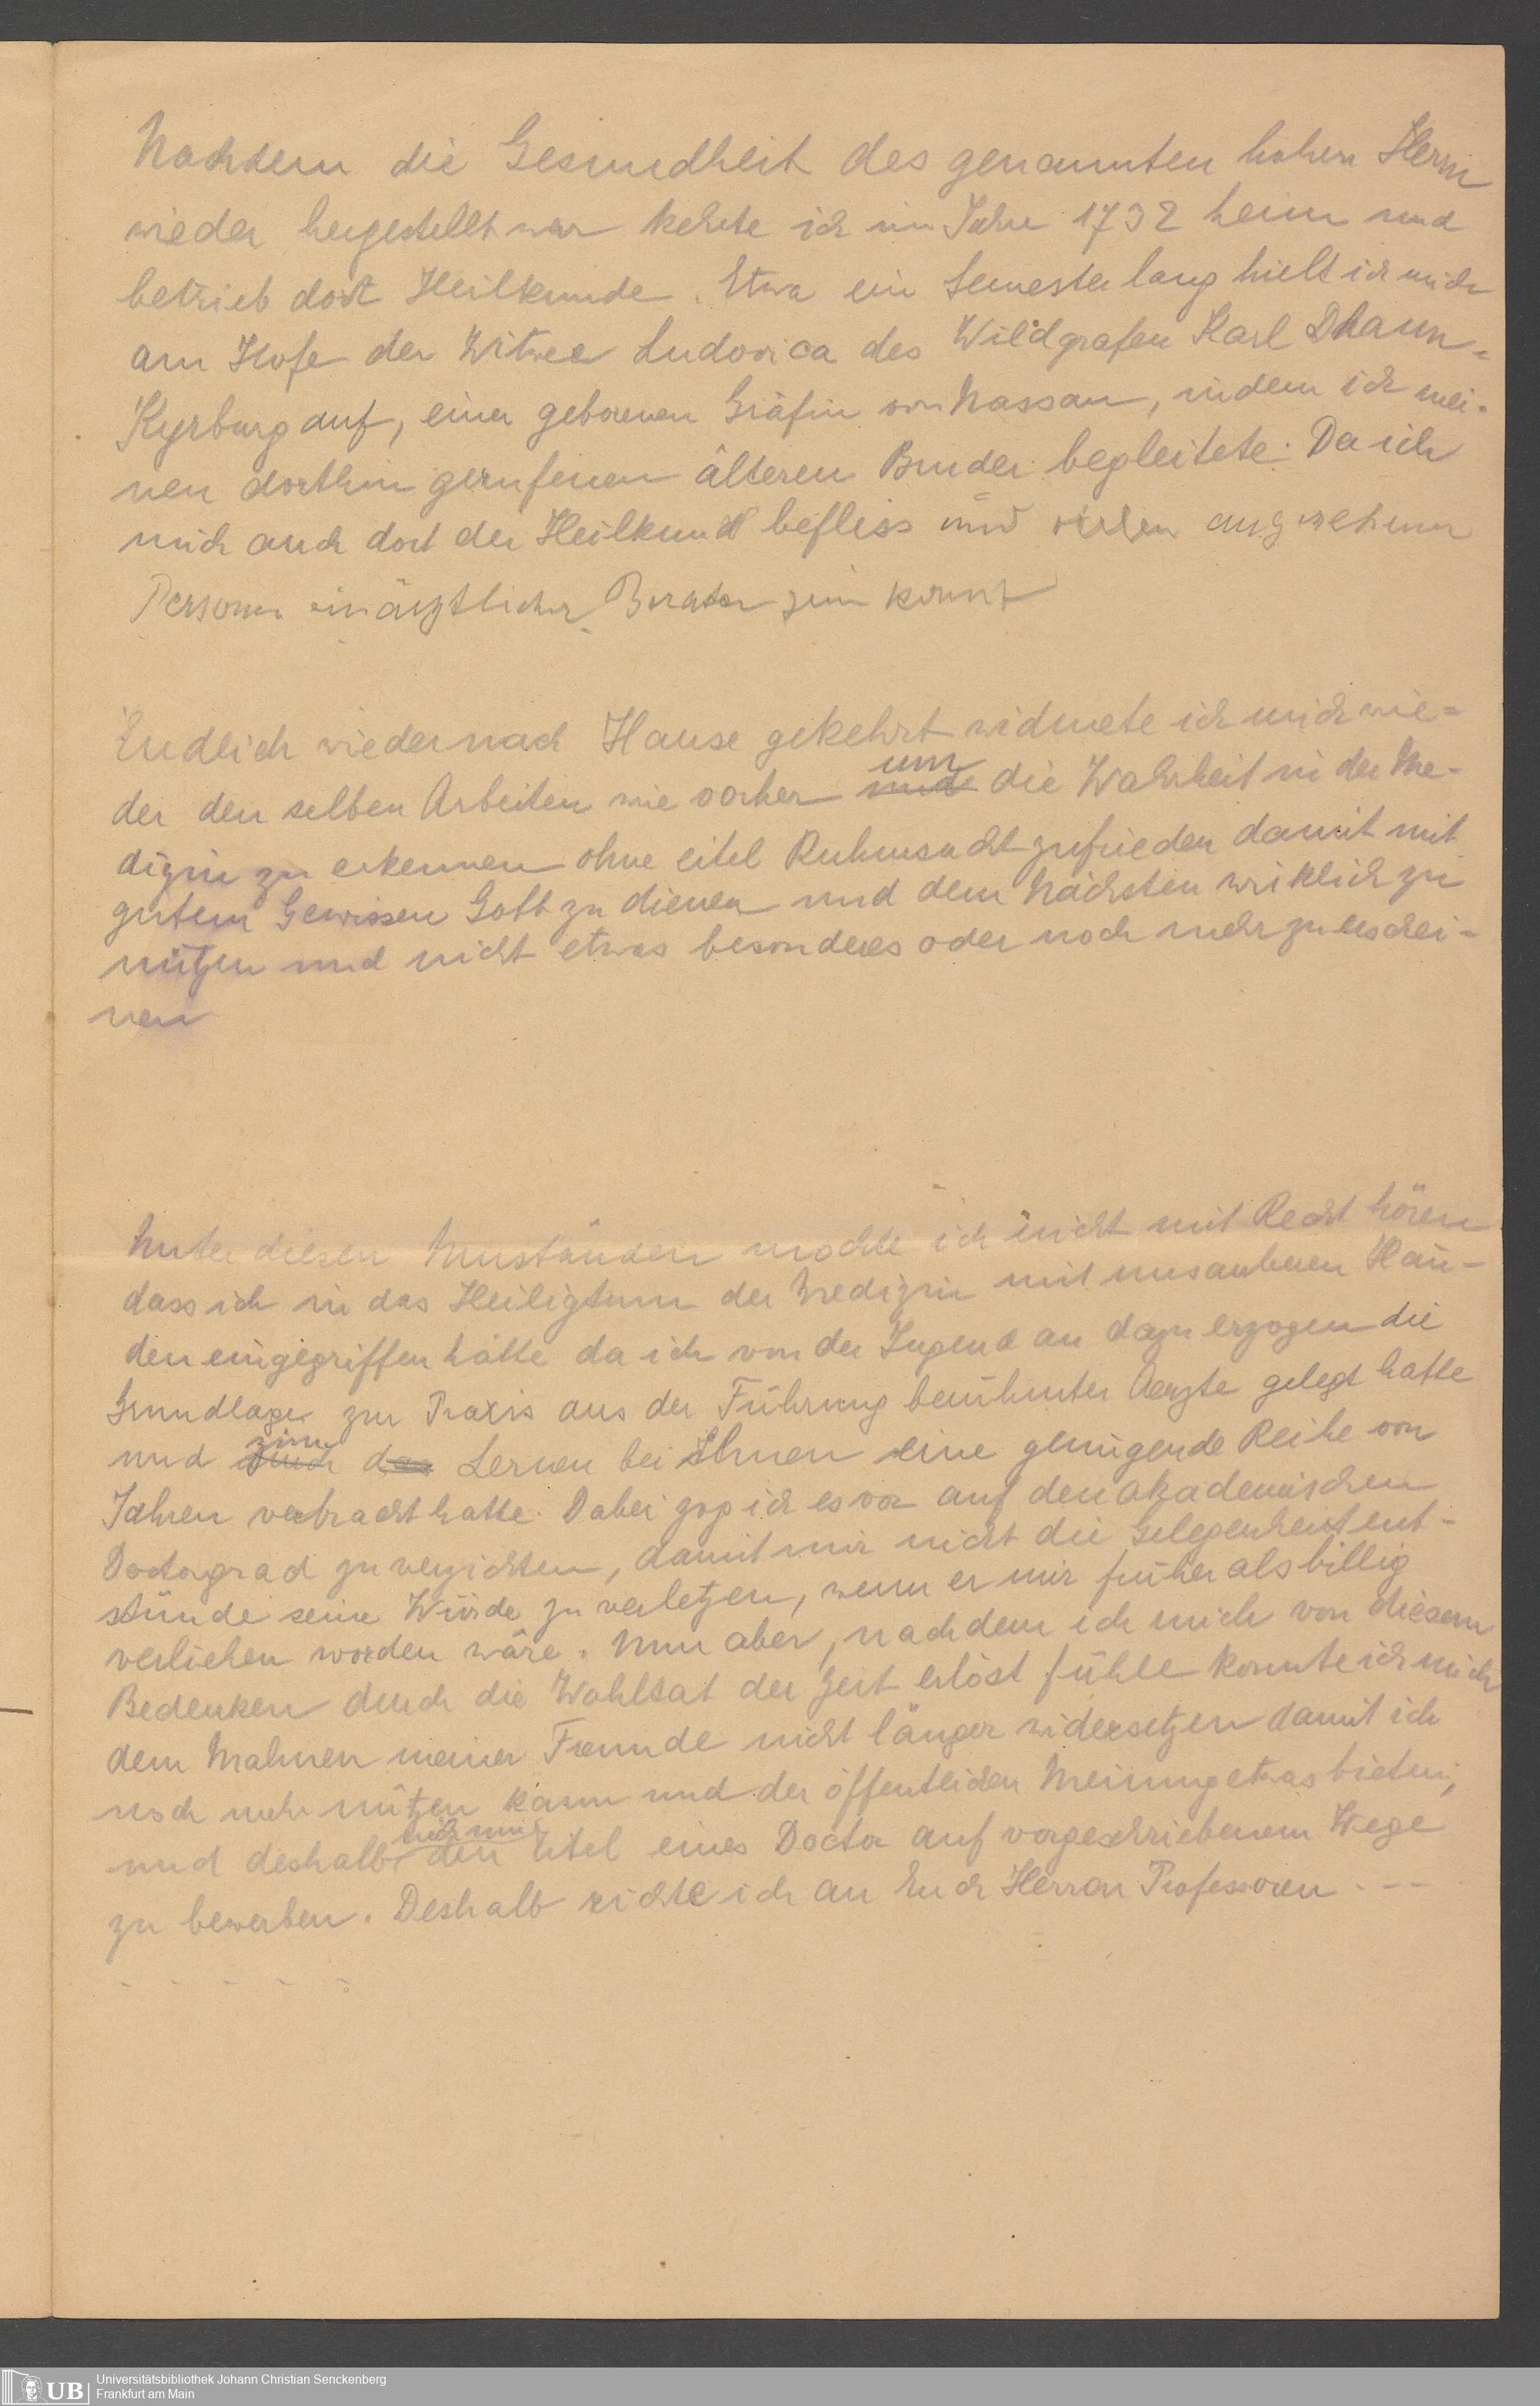 Nachdem die Gesundheit des genannten hohen Herrn
wieder hergestellt war kehrte ich im Jahre 1732 heim und
betrieb dort Heilkunde. Etwa ein Semester lang hielt ich mich
am Hofe der Witwe Ludovica des Wildgrafen Karl Dhaun-
Kyrburg auf, einer geborenen Gräfin von Nassau, indem ich mei-
nen dorthin gerufenen älteren Bruder begleitete. Da ich
mich auch dort der Heilkund befliss und vielen angesehenen
Personen ein ärztlicher Berater sein konnt
Endlich wieder nach Hause gekehrt widmete ich mich wie=
der den selben Arbeiten wie vorher um die Wahrheit in der Me-
dizin zu erkennen ohne eitel Ruhmsucht zufrieden damit mit
gutem Gewissen Gott zu dienen und dem Nächsten wirklich zu
nützen und nicht etwas besonderes oder noch mehr zu erschei-
nen
Unter diesen Umständen mochte ich nicht mit Recht hören
dass ich in das Heiligtum der Medizin mit unsauberen Hän-
den eingegriffen hätte da ich von der Jugend an dazu erzogen die
Grundlage zur Praxis aus der Führung berühmter Aerzte gelegt hatte
und zum Lernen bei Ihnen eine genügende Reihe von
Jahren verbracht hatte. Dabei zog ich es vor auf den akademischen
Doctorgrad zu verzichten, damit mir nicht die Gelegenheit ent-
stünde seine Würde zu verletzen, wenn er mir früher als billig
verliehen worden wäre. Nun aber, nachdem ich mich von diesem
Bedenken durch die Wohltat der Zeit erlöst fühle konnte ich mich
dem Mahnen meiner Freunde nicht länger widersetzen damit ich
noch mehr nützen kann und der öffentlichen Meinung etwas bieten,
und deshalb mich um den Titel eines Doctor auf vorgeschriebenem Wege
zu bewerben. Deshalb richte ich an Euch Herren Professoren - - -
- - - - - -
UB Universitätsbibliothek Johann Christian Senckenberg
Frankfurt am Main